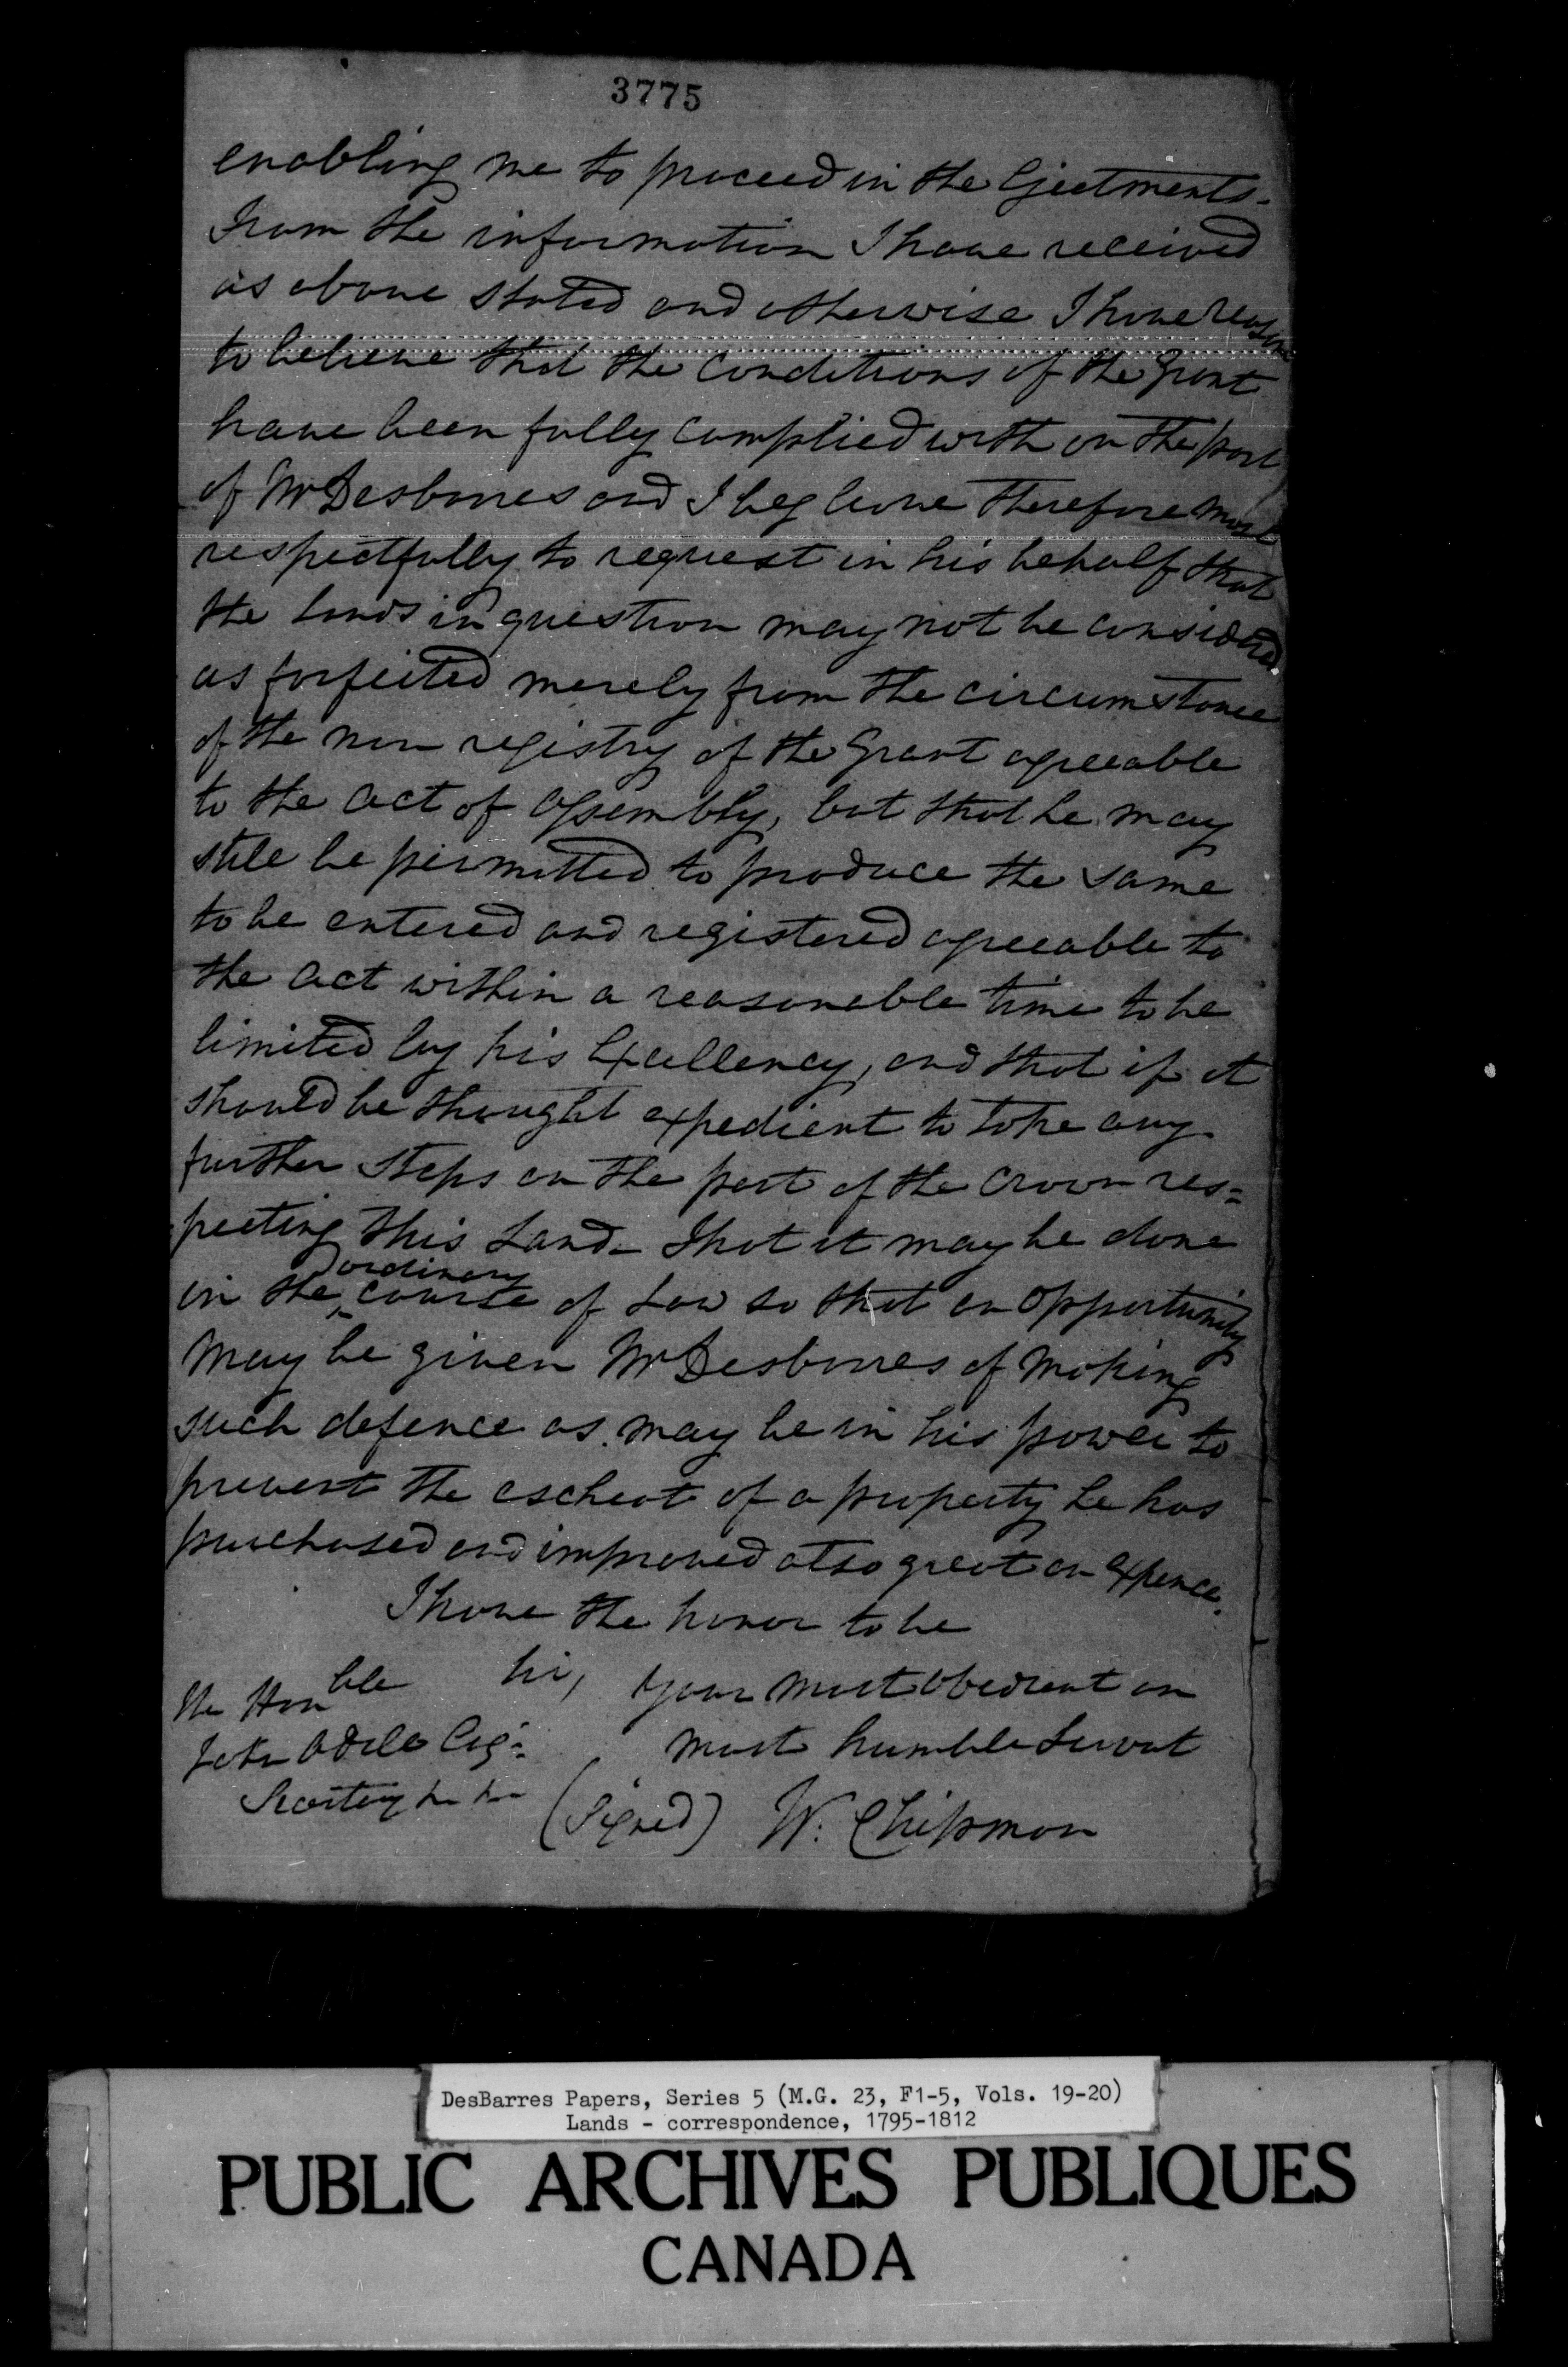 3775
enabling me to proceed in the Ejectments.
From the information I have received
as above stated and otherwise I have reason
to believe that the Conditions of the Grant
have been fully complied with on the part
of Mr Desbarres and I beg leave therefore most
respectfully to request in his behalf that
the lands in question may not be considered
as forfeited merely from the circumstance
of the non registry of the Grant agreeable
to the Act of Assembly, but that he may
still be permitted to produce the same
to be entered and registered agreeable to
the Act within a reasonable time to be
limited by his Excellency, and that if it
should be thought expedient to take any
further steps on the part of the Crown res=
pecting this Land - That it may be done
in the ordinary course of Law so that an opportunity
may be given Mr Desbarres of making
such defence as may be in his power to
prevent the escheat of a property he has
purchased and improved at so great an expence.
I have the honor to be
Sir, your most obedient an
The Honble
most humble Servat
John Odell Esqr
(Signed) W. Chipman
DesBarres Papers, Series 5 (M.G. 23, F1-5, Vols. 19-20)
Lands - correspondence, 1795-1812
PUBLIC ARCHIVES PUBLIQUES
CANADA